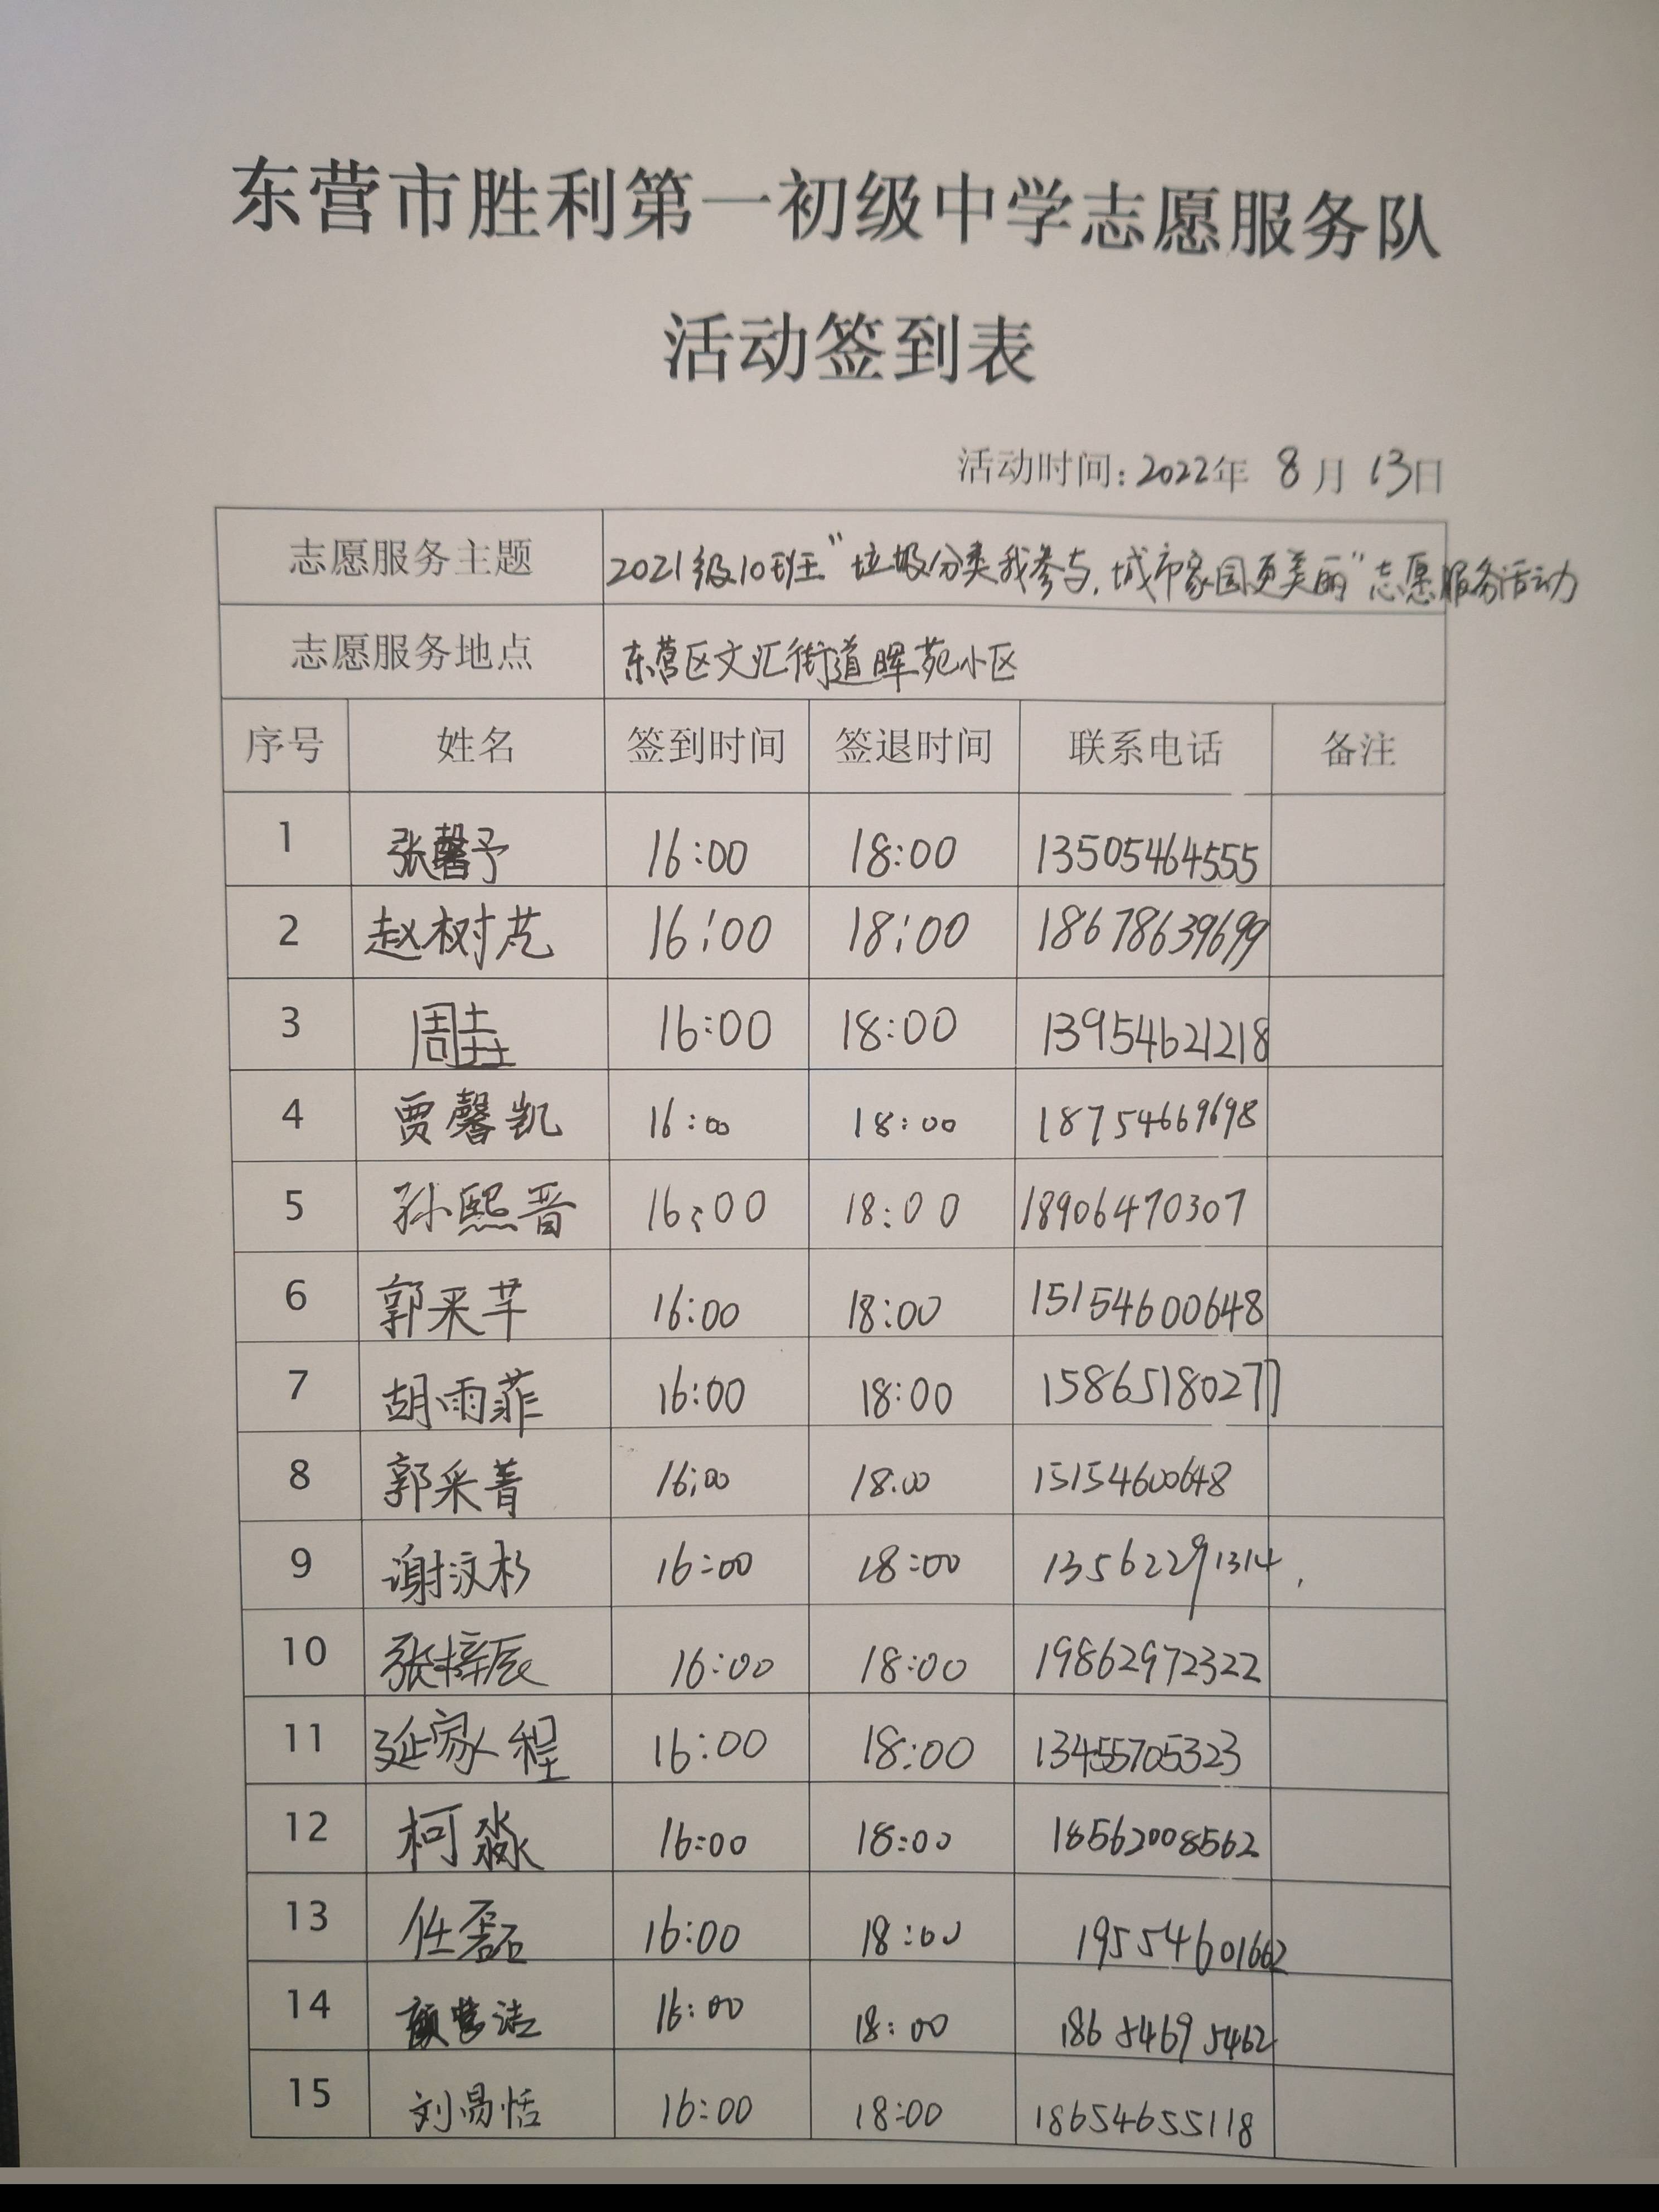 东营市胜利第一初级中学志愿服务队
活动签到表
活动时间：2022年 8月 13日
志愿服务主题 2021级10班“垃圾分类我参与，城市家园更美丽”志愿服务活动
志愿服务地点 东营区文汇街道晖苑小区
序号 姓名 签到时间 签退时间 联系电话 备注
1 张馨予 16:00 18:00 13505464555
2 赵树芃 16:00 18:00 18678639699
3 周垚 16:00 18:00 13954621218
4 贾馨凯 16:00 18:00 18754669698
5 孙熙晋 16:00 18:00 18906470307
6 郭采芊 16:00 18:00 15154600648
7 胡雨菲 16:00 18:00 15865180277
8 郭采菁 16:00 18:00 15154600648
9 谢汶杉 16:00 18:00 13562291314
10 张梓辰 16:00 18:00 19862972322
11 延家人程 16:00 18:00 13455705323
12 柯淼 16:00 18:00 18562008562
13 任磊 16:00 18:00 19554601662
14 颜 洁 16:00 18:00 18654695462
15 刘易恬 16:00 18:00 18654655118